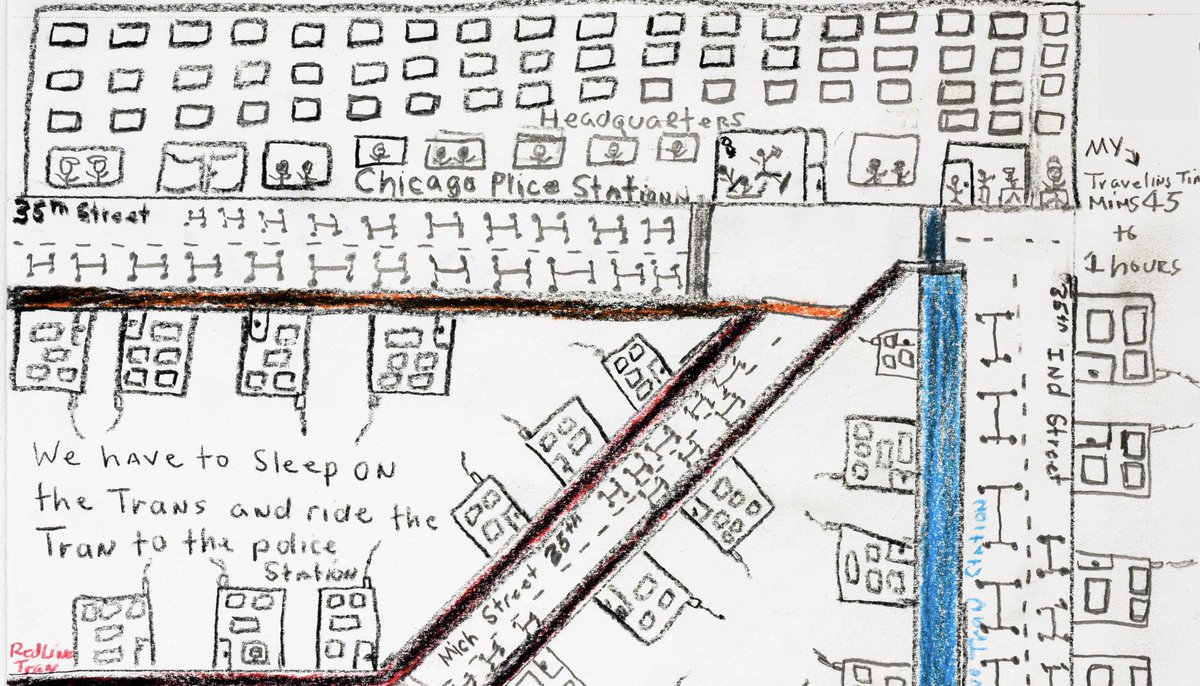 Headquarters
Chicago Plice Stationn
35th Street
MY
Traveling Tim
Mins 45
to
1 hours
35th IND Street
We have to Sleep on
the Trans and ride the
Tran to the police
Station
Mich Street 35th
ve Tran Station
RedLine
Tran